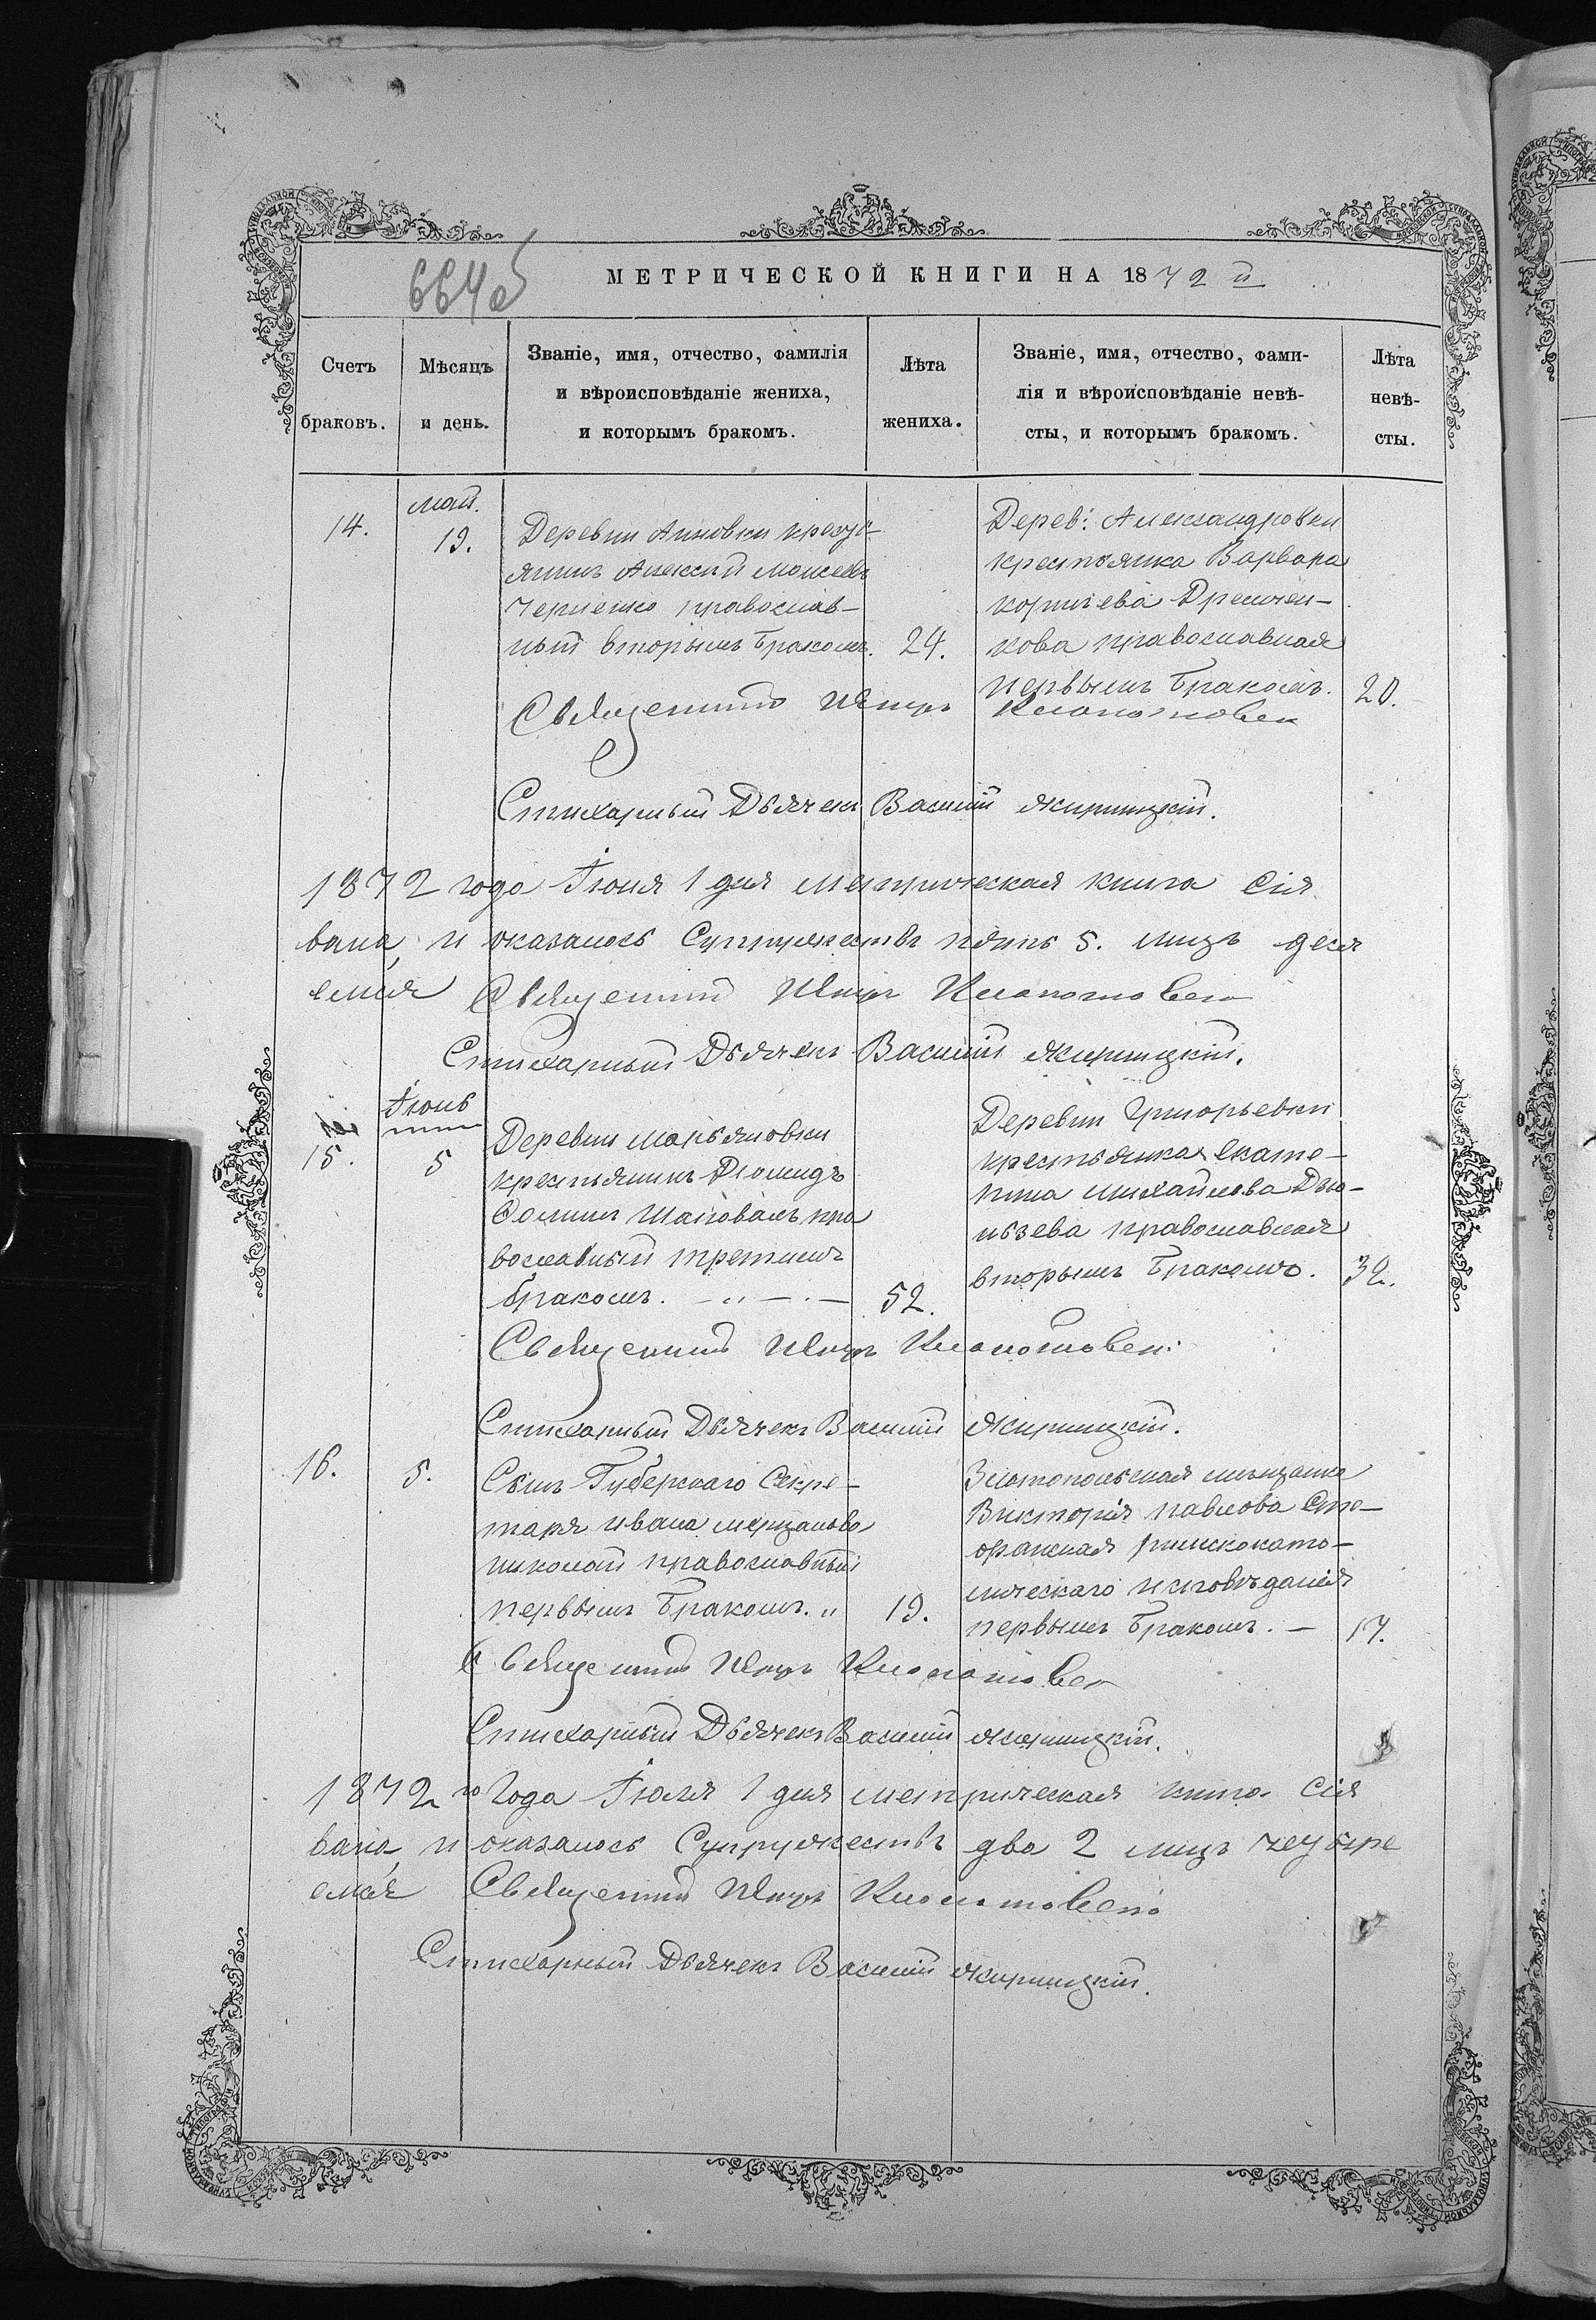 664 об
МЕТРИЧЕСКОЙ КНИГИ НА 1872 й
Счетъ браковъ.
Мѣсяцъ и день.
Званіе, имя, отчество, фамилія
и вѣроисповѣданіе жениха,
и которымъ бракомъ.
Лѣта жениха.
Званіе, имя, отчество, фами-
лія и вѣроисповѣданіе невѣ-
сты, и которымъ бракомъ.
Лѣта невѣ-
сты.
14.
май.
19.
Деревни Анновки кресть-
янинъ Алексѣй Моисеевъ
Черненко православ-
ный вторымъ бракомъ.
24.
Дерев: Александровки
крестьянка Варвара
Корніева
кова православная
первымъ бракомъ.
20.
Священникъ
Стихарный Дьячекъ Василій Жирицкій.
1872 года Іюня 1 дня метрическая книга сія
вана, и оказалось Супружествъ пять 5. лицъ деся
емся Священникъ
Стихарный Дьячекъ Василій Жирицкій.
Іюнь
15.
5
Деревни Марьяновки
крестьянинъ Діомидъ
Фоминъ Шаповалъ пра
вославный третимъ
бракомъ. — „ — . —
52.
Деревни Григорьевки
крестьянка Екате-
рина Михайлова
православная
вторымъ бракомъ.
32.
Священникъ
Стихарный Дьячекъ Василій Жирицкій.
16.
5.
Сынъ Губерскаго Секре-
таря Ивана
Николай православный
первымъ бракомъ. „
19.
Златопольская мѣщанка
Викторія Павлова Сте-
фанская римскокато-
лическаго исповѣданія
первымъ бракомъ. —
17.
Священникъ
Стихарный Дьячекъ Василій Жирицкій.
1872 го Года Іюля 1 дня метрическая книга сія
вана, и оказалось Супружествъ два 2 лицъ четыре
емся Священникъ
Стихарный Дьячекъ Василій Жирицкій.